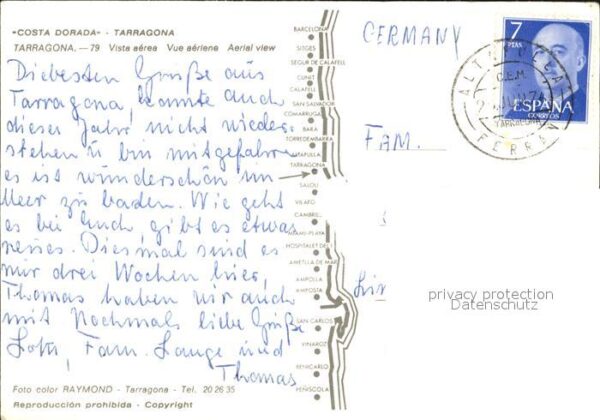 «COSTA DORADA» - TARRAGONA
TARRAGONA. — 79 Vista aérea Vue aérienne Aerial view
Die besten Grüße aus
Tarragona, konnte auch
dieses Jahr nicht wieder-
stehen u bin mitgefahren
es ist wunderschön im
Meer zu baden. Wie geht
es bei Euch, gibt es etwas
neues. Diesmal sind es
nur drei Wochen hier,
Thomas haben wir auch
mit Nochmals liebe Grüße
Fam. Lange und
Thomas
Foto color RAYMOND - Tarragona - Tel. 20 26 35
Reproducción prohibida - Copyright
BARCELONA
SITGES
SEGUR DE CALAFELL
CUNIT
CALAFELL
SAN SALVADOR
COMARRUGA
BARA
TORREDEMBARRA
ALTAFULLA
TARRAGONA
SALOU
VILAFO
CAMBRIL
MIAMI-PLAYA
HOSPITALET DEL I.
AMETLLA DE MAR
AMPOLLA
AMPOSTA
SAN CARLOS
VINAROZ
BENICARLO
PEÑISCOLA
GERMANY
FAM.
7
PTAS
ESPAÑA
CORREOS
C.E.M.
TARRAGONA
FERRAN
privacy protection
Datenschutz